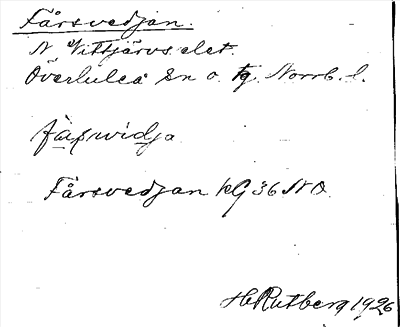 Fårsvedjan.
N Vittjärvs elet.
Överluleå Sn o. tg. Norrb. l.
Fårsvedjan kG 36 NO
H Rutberg 1926